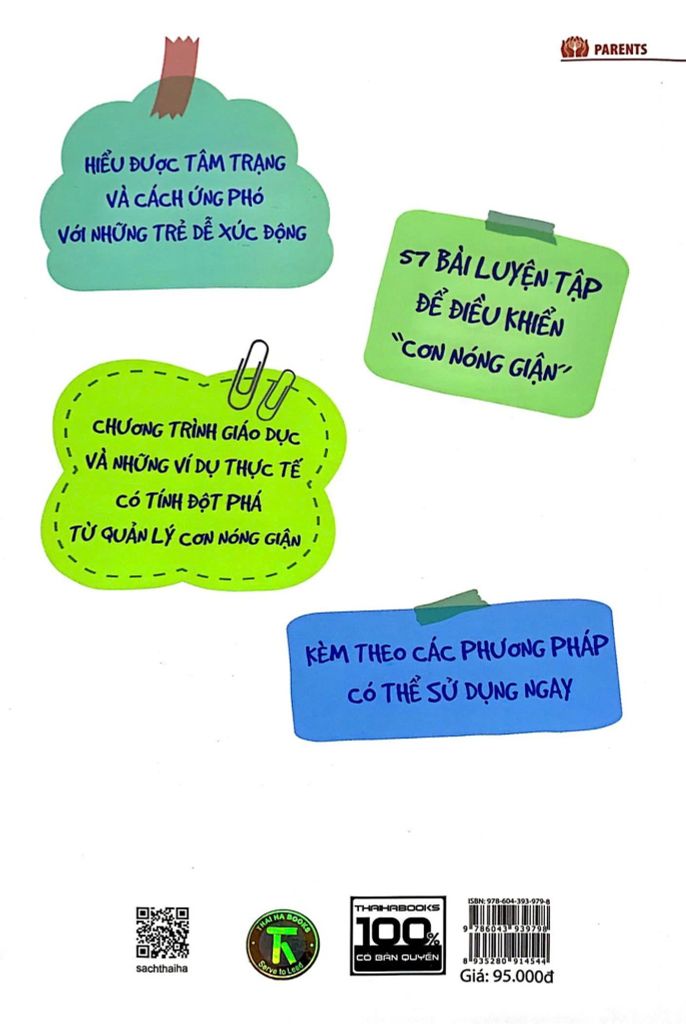 PARENTS
HIỂU ĐƯỢC TÂM TRẠNG
VÀ CÁCH ỨNG PHÓ
VỚI NHỮNG TRẺ DỄ XÚC ĐỘNG
57 BÀI LUYỆN TẬP
ĐỂ ĐIỀU KHIỂN
“CƠN NÓNG GIẬN”
CHƯƠNG TRÌNH GIÁO DỤC
VÀ NHỮNG VÍ DỤ THỰC TẾ
CÓ TÍNH ĐỘT PHÁ
TỪ QUẢN LÝ CƠN NÓNG GIẬN
KÈM THEO CÁC PHƯƠNG PHÁP
CÓ THỂ SỬ DỤNG NGAY
sachthaiha
THAI HA BOOKS
Serve to Lead
THAIHABOOKS
100%
CÓ BẢN QUYỀN
ISBN: 978-604-393-979-8
9 786043 939798
8 935280 914544
Giá: 95.000đ